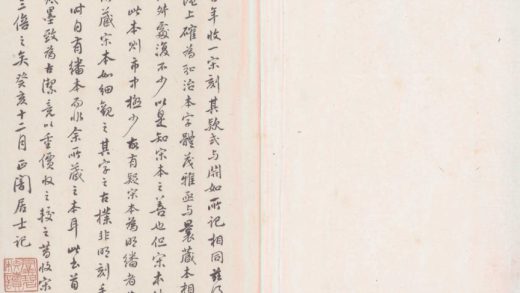 年收一宋刻其款式与闕如所记相同兹
上確為弘治本字體茂雅亟与曩藏本相
外霉澷不少以是知宋本之善也但宋本
此本则市中極少故有疑宋本為明繙者
蔵宋本如細觀之其字之古樸非明刻
时自有繙本而非余所蔵之本耳此书首
墨致為古潔竟以重價收之較之昔收宋
三倍之矣癸亥十二月正闇居士记